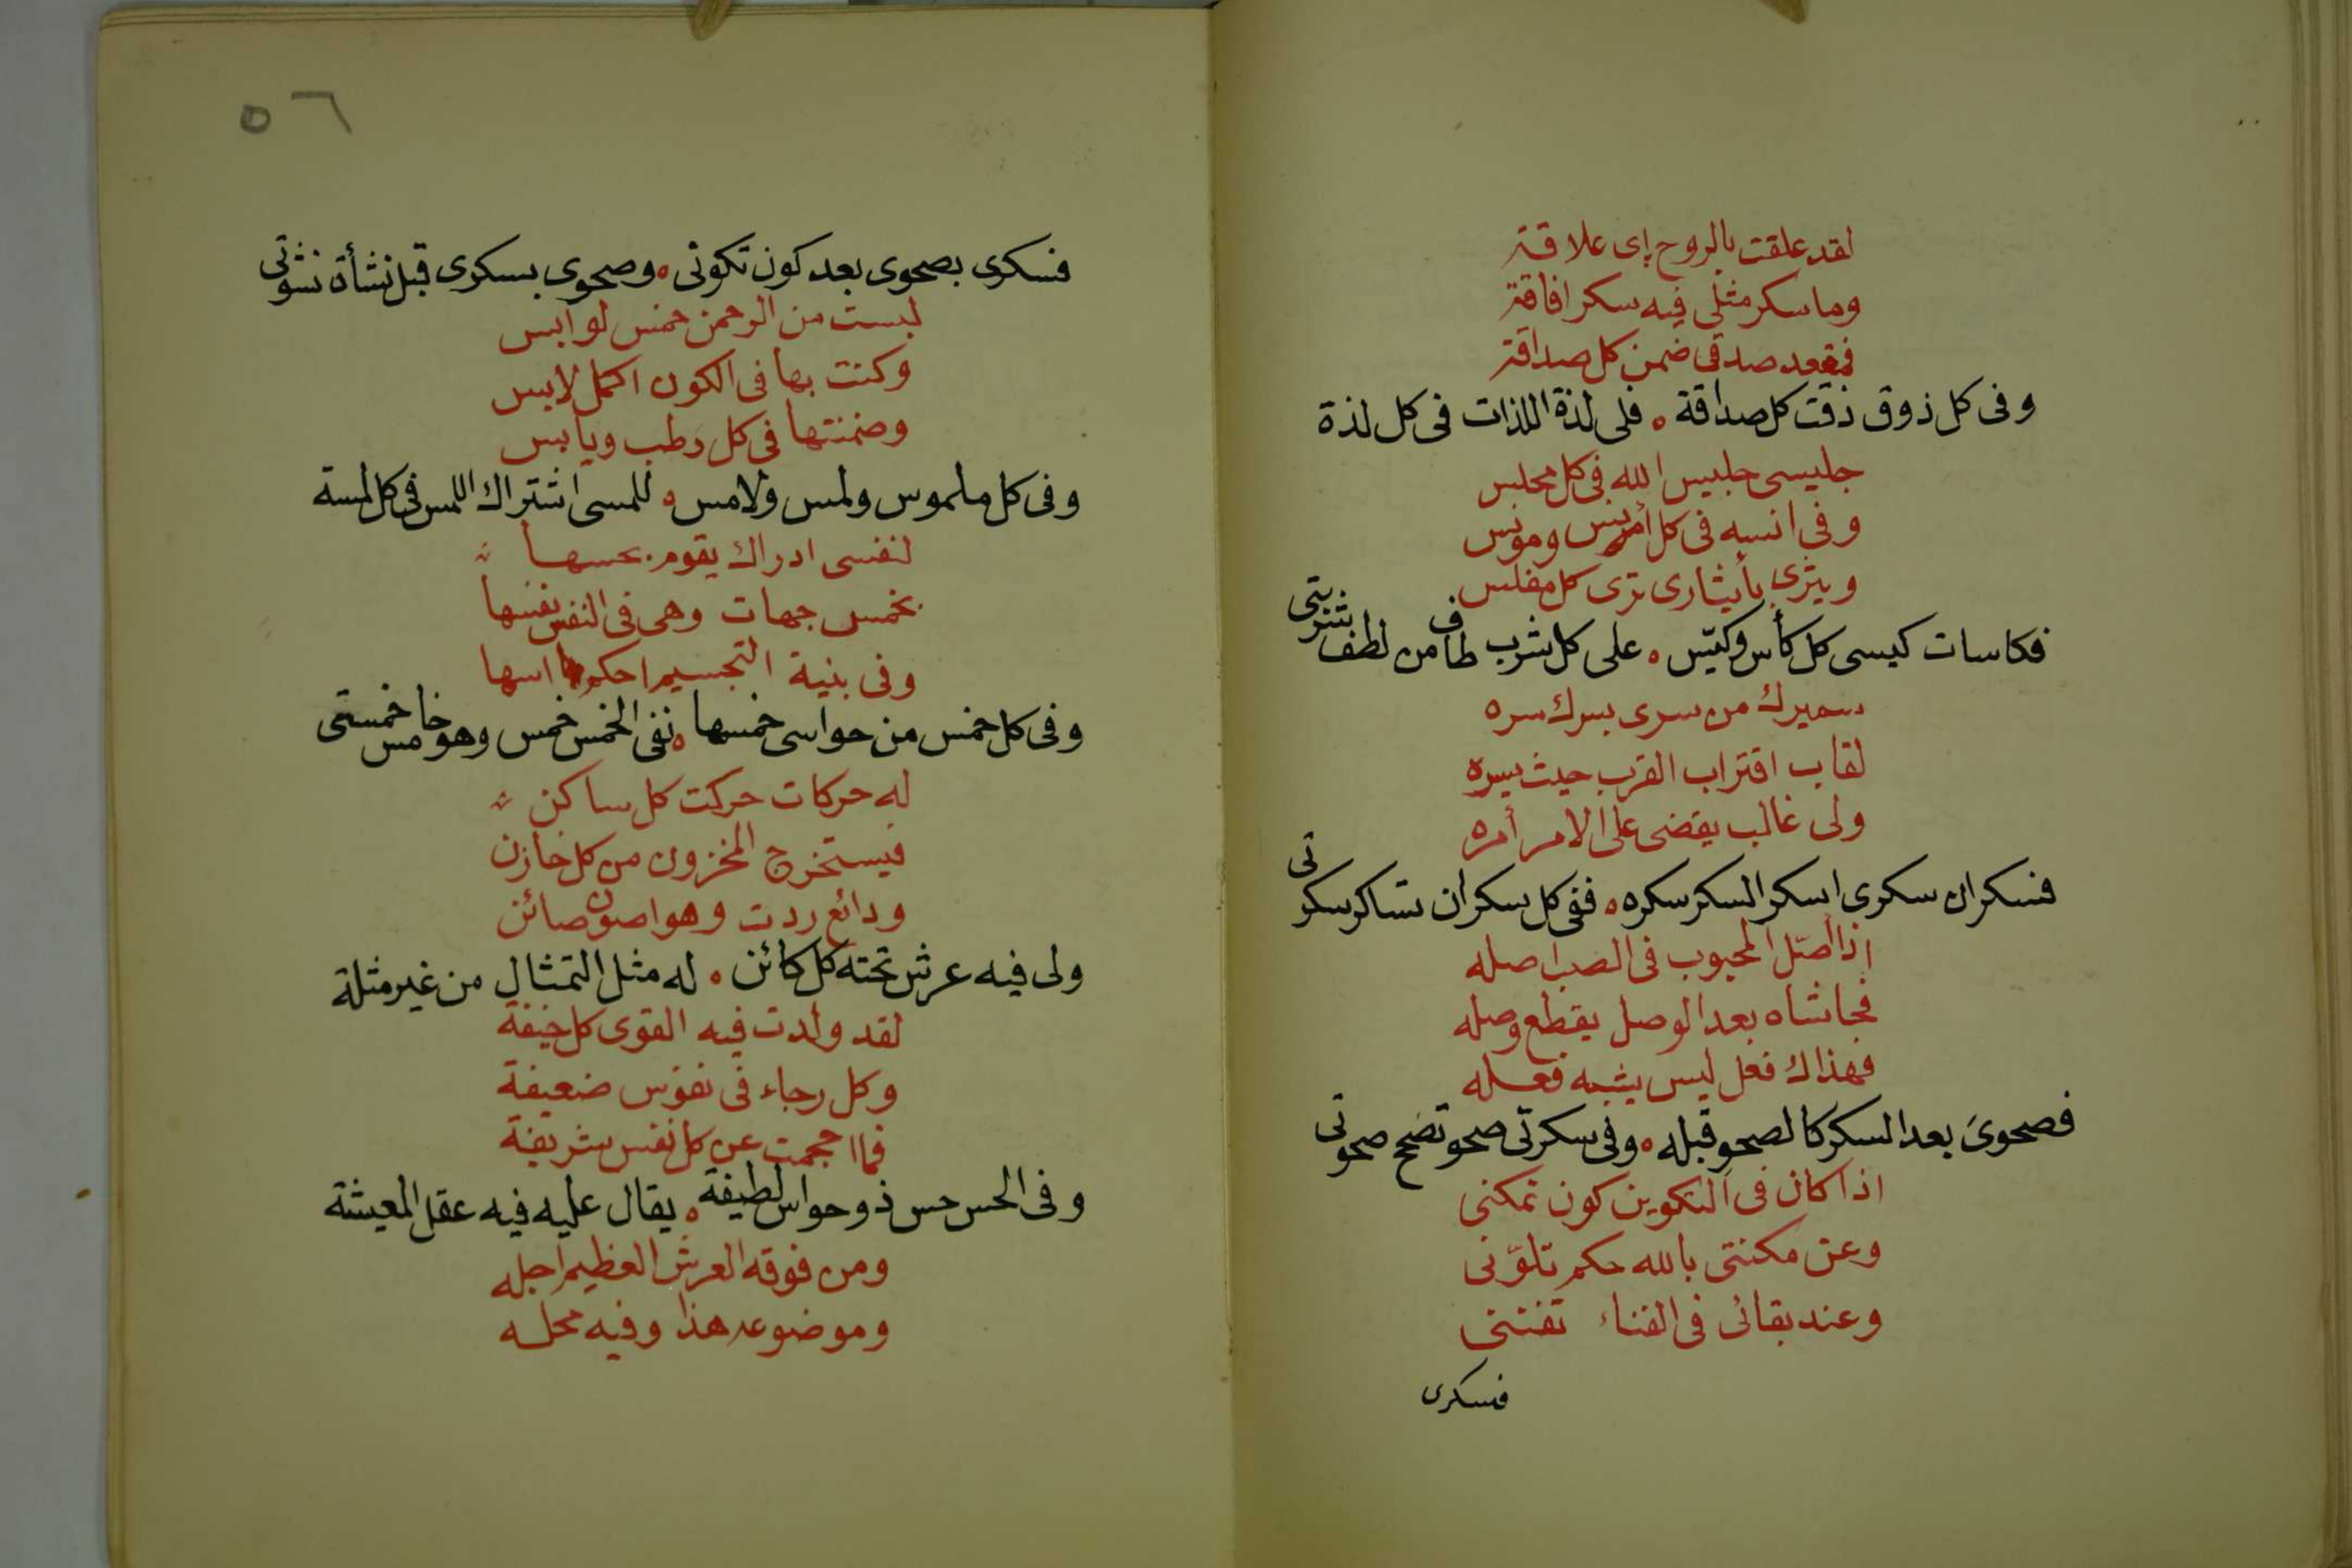 لقد علقت بالروح إى علاقة
وما سكر مثلى فيه سكر افاقة
فمقعد صدقى ضمن كل صداقة
وفى كل ذوق ذقت كل صداقة ه فلى لذة اللذات فى كل لذة
جليسى جليس الله فى كل مجلس
وفى انسه فى كل أنيس ومونس
ويثرى بأيثارى ترى كل مفلس
فكاسات كيسى كل كأس وكيّس ه على كل شرب طاف من لطف شربتى
سميرك من سرى بسرك سره
لقاب اقتراب القرب حيث يسره
ولى غالب يقضى على الامر أمره
فسكران سكرى اسكر السكر سكره ه ففى كل سكران تساكر سكرتى
اذا أصّل المحبوب فى الصب اصله
فحاشاه بعد الوصل يقطع وصله
فهذاك فعل ليس يشبه فعله
فصحوىَ بعد السكر كالصحو قبله ه وفى سكرتى صحو تضح صحوتى
اذا كان فى التكوين كون تمكنى
وعن مكنتى بالله حكم تلوّنى
وعند بقائى فى الفناء تفتنى
فسكرى
٥٦
فسكرى بصحوى بعد كون تكونى ه وصحوى بسكرى قبل نشأة نشوتى
لبست من الرحمن خمس لوابس
وكنت بها فى الكون اكمل لابس
وضمنتها فى كل رطب ويابس
وفى كل ملموس ولمس ولامس ه للمسى اشتراك اللمس فى كل لمسة
لنفسى ادراك يقوم بحسها
بخمس جهات وهى فى النفس نفسها
وفى بنية التجسيم احكم اسها
وفى كل خمس من حواسى خمسها ه نفى الخمس خمس وهو خامس خمستى
له حركات حركت كل ساكن
فيستخرج المخزون من كل خازن
ودائع ردت وهو اصون صائن
ولى فيه عرش تحته كل كائن ه له مثل التمثال من غير مثلة
لقد ولدت فيه القوى كل خيفة
وكل رجاء فى نفوس ضعيفة
فما احجمت عن كل نفس شريفة
وفى الحس حس ذو حواس لطيفة ه يقال عليه فيه عقل المعيشة
ومن فوقه العرش العظيم اجله
وموضوعه هذا وفيه محله